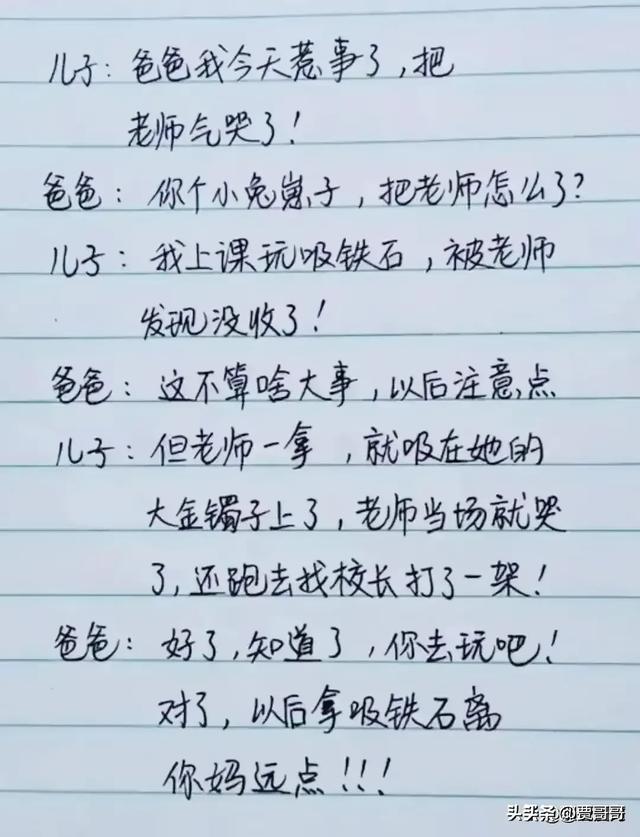 儿子：爸爸我今天惹事了，把
老师气哭了！
爸爸：你个小兔崽子，把老师怎么了？
儿子：我上课玩吸铁石，被老师
发现没收了！
爸爸：这不算啥大事，以后注意点
儿子：但老师一拿，就吸在她的
大金镯子上了，老师当场就哭
了，还跑去找校长打了一架！
爸爸：好了，知道了，你去玩吧！
对了，以后拿吸铁石离
你妈远点！！！
头条 @贾哥哥